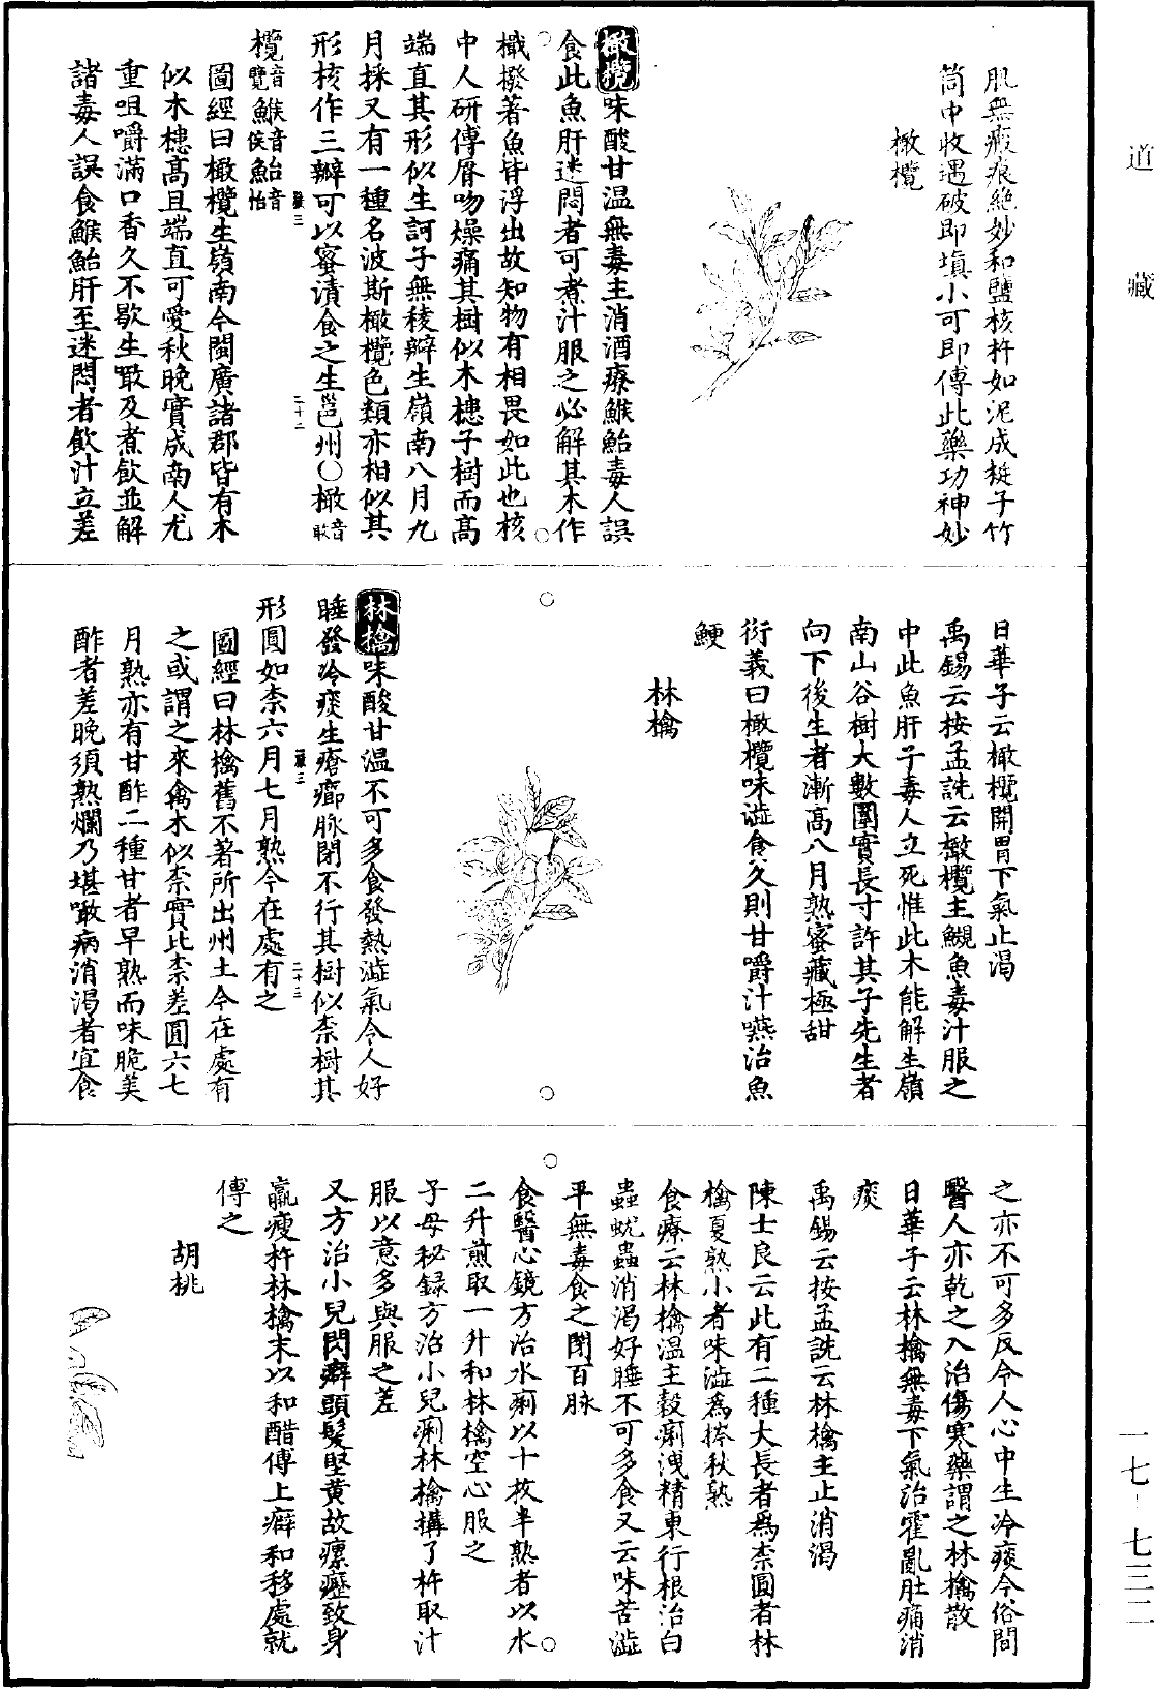 道藏
肌無瘢痕絶妙和鹽核杵如泥成梃子竹
筒中收遇破即塡小可即傅此藥功神妙
橄欖
橄欖味酸甘温無毒主消酒療鯸鮐毒人誤
食此魚肝迷悶者可煮汁服之必解其木作
檝撥著魚皆浮出故知物有相畏如此也核
中人研傅脣吻燥痛其樹似木槵子樹而髙
端直其形似生訶子無稜瓣生嶺南八月九
月採又有一種名波斯橄欖色類亦相似其
形核作三瓣可以蜜漬食之生邕州○橄音敢
欖音覽鯸音侯鮐音怡
圖經曰橄欖生嶺南今閩廣諸郡皆有木
似木槵髙且端直可愛秋晚實成南人尤
重咀嚼滿口香久不歇生噉及煮飲並解
諸毒人誤食鯸鮐肝至迷悶者飲汁立差
日華子云橄欖開胃下氣止渴
禹錫云按孟詵云橄欖主鯢魚毒汁服之
中此魚肝子毒人立死惟此木能解生嶺
南山谷樹大數圍實長寸許其子先生者
向下後生者漸髙八月熟蜜藏極甜
衍義曰橄欖味澁食久則甘嚼汁嚥治魚
鯁
林檎
林檎味酸甘温不可多食發熱澁氣令人好
睡發冷痰生瘡癤脉閉不行其樹似柰樹其
形圓如柰六月七月熟今在處有之
圖經曰林檎舊不著所出州土今在處有
之或謂之來禽木似柰實比柰差圓六七
月熟亦有甘酢二種甘者早熟而味脆美
酢者差晚須熟爛乃堪噉病消渴者宜食
之亦不可多反令人心中生冷痰今俗間
醫人亦乾之入治傷寒藥謂之林檎散
日華子云林檎無毒下氣治霍亂肚痛消
痰
禹錫云按孟詵云林檎主止消渴
陳士良云此有二種大長者爲柰圓者林
檎夏熟小者味澁爲㮈秋熟
食療云林檎温主穀痢洩精東行根治白
蟲蚘蟲消渴好睡不可多食又云味苦澁
平無毒食之閉百脉
食醫心鏡方治水痢以十枚半熟者以水
二升煎取一升和林檎空心服之
子母秘録方治小兒痢林檎構了杵取汁
服以意多與服之差
又方治小兒閃癖頭髮堅黄故瘰癧致身
羸瘦杵林檎末以和醋傅上癬和移處就
傅之
胡桃
一七-七三二